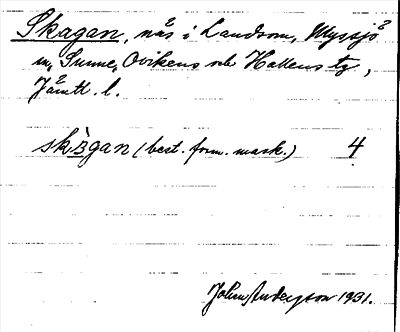 Skagan, nås i Landsom, Myssjö
m, Sunne, Ovikens och Hallens tg,
Jämtl. l.
skàgan (best. form. mask.) 4
John Anderzon 1931.